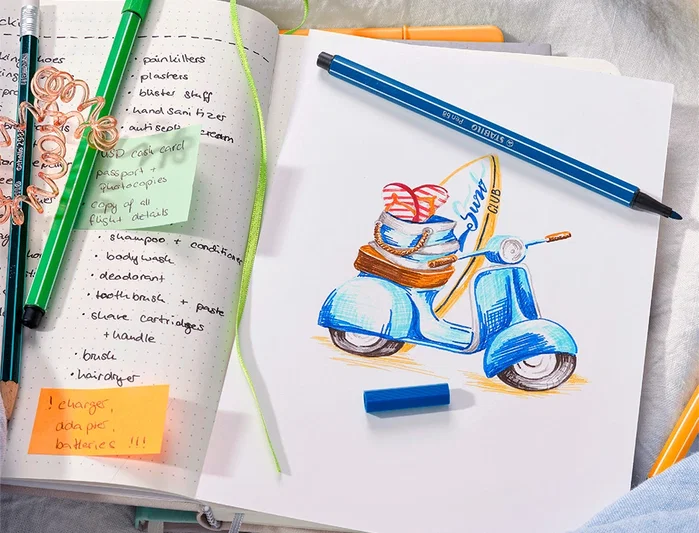 oes
• painkillers
• plasters
• blister stuff
• hand sanitizer
• antiseptic cream
USD cash card
passport +
photocopies
copy of all
flight details
• shampoo + conditioner
• body wash
• deodorant
• toothbrush + paste
• shave cartridges
+ handle
• brush
• hairdryer
! charger,
adapter,
batteries !!!
STABILO Pen 68
Surf
CLUB